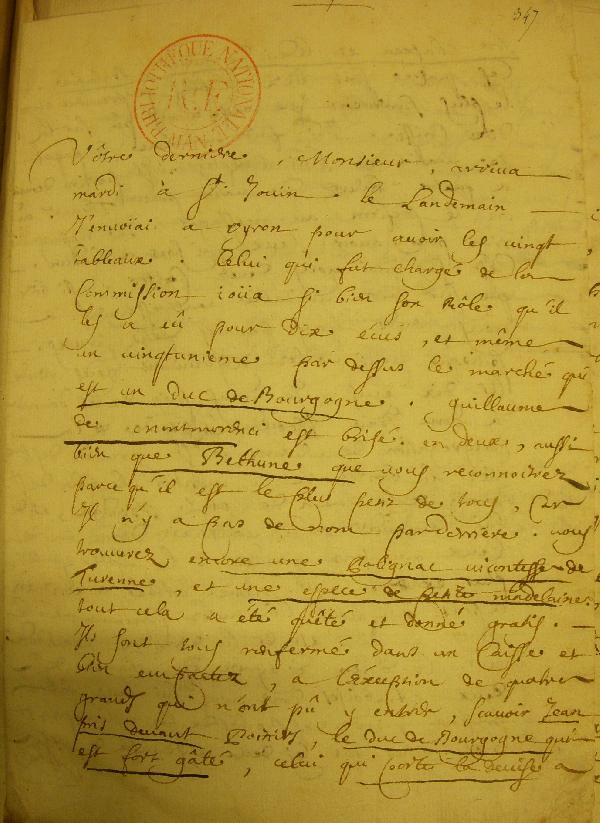 347
BIBLIOTHEQUE NATIONALE MSS
R.F.
Vôtre derniere, Monsieur, arriva
mardi à St Jouin. le Landemain
J'envoiai a oyron pour avoir les vingt
tableaux. Celui qui fut chargé de la
Commission ioüa si bien son Rôle qu'il
les a eû pour dix écus, et même
un vingtunieme par dessus le marché qui
est un duc de Bourgogne. guillaume
de est brisé en deux, aussi
bien que Bethune que vous reconnoitrez
parcequ'il est le plus petit de tous, Car
Il n'y a pas de nom parderriere. vous
trouverez encore une Polignac vicontesse de
Turenne, et une espece de petite madelaine,
tout cela a été quêté et donné gratis.
Ils sont tous renfermé dans un Caisse et
bien, a l'éxception de quatre
grands qui n'ont pû y entrer, scavoir Jean
pris devant Poitiers, le duc de Bourgogne qui
est fort gâté, celui qui porte la devise a